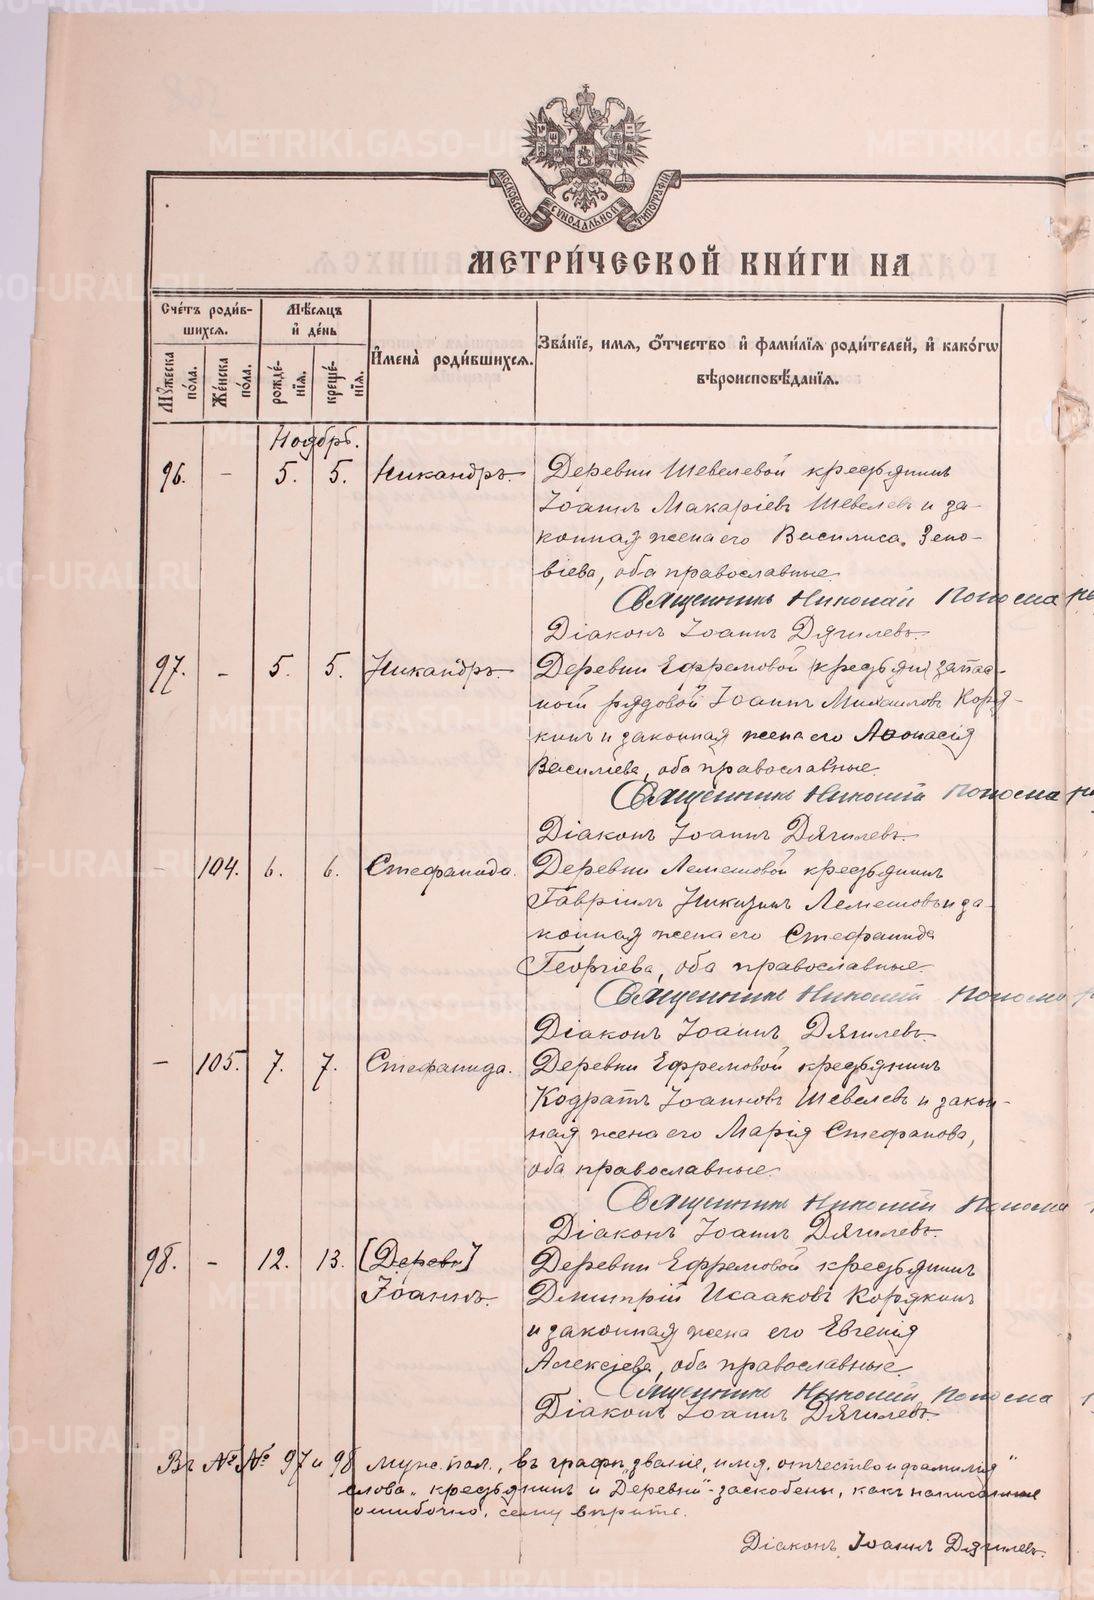 МОСКОВСКОЙ СѴНОДАЛЬНОЙ ТИПОГРАФІИ
МЕТРИ́ЧЕСКОЙ КНИ́ГИ НА
Сче́тъ роди́в-
шихся.
Мѣ́сяцъ
и҆ де́нь
И҆мена̀ роди́вшихся.
Зва́нїе, имя, ѻ҆́тчество и҆ фами́лїя роди́телей, и҆ како́гѡ
вѣроисповѣ́данїя.
Мꙋ́жеска
по́ла.
Же́нска
по́ла.
рожде́-
нїя.
креще́-
нїя.
Ноябрь.
96. - 5. 5. Никандръ. Деревни Шевелевой крестьянинъ
Іоаннъ Макаріевъ Шевелевъ и за-
конная жена его Василиса Зено-
віева, оба православные.
Священникъ Николай Пономарь
Діаконъ Іоаннъ Дягилевъ.
97. - 5. 5. Никандръ. Деревни Ефремовой (крестьян) запас-
ной рядовой Іоаннъ Михаиловъ Коря-
кинъ и законная жена его Аѳонасія
Василіева, оба православные.
Священникъ Николай Пономар
Діаконъ Іоаннъ Дягилевъ.
- 104. 6. 6. Стефанида. Деревни Лемешовой крестьянинъ
Гавріилъ Никитинъ Лемешовъ и за-
конная жена его Стефанида
Георгіева, оба православные.
Священникъ Николай Пономар
Діаконъ Іоаннъ Дягилевъ.
- 105. 7. 7. Стефанида. Деревни Ефремовой крестьянинъ
Кодратъ Іоанновъ Шевелевъ и закон-
ная жена его Марія Стефанова,
оба православные.
Священникъ Николай Понома
Діаконъ Іоаннъ Дягилевъ.
98. - 12. 13. [Деревн] Деревни Ефремовой крестьянинъ
Іоаннъ. Димитрій Исааковъ Корякинъ
и законная жена его Евгенія
Алексіева, оба православные.
Священникъ Николай Понома
Діаконъ Іоаннъ Дягилевъ.
Въ №№ 97 и 98 муж. пол., въ графѣ „званіе, имя, отчество и фамилія"
слова „крестьянинъ и Деревни" заскоблены, какъ написанные
ошибочно, сему вѣрить.
Діаконъ Іоаннъ Дягилевъ.
METRIKI.GASO-URAL.RU